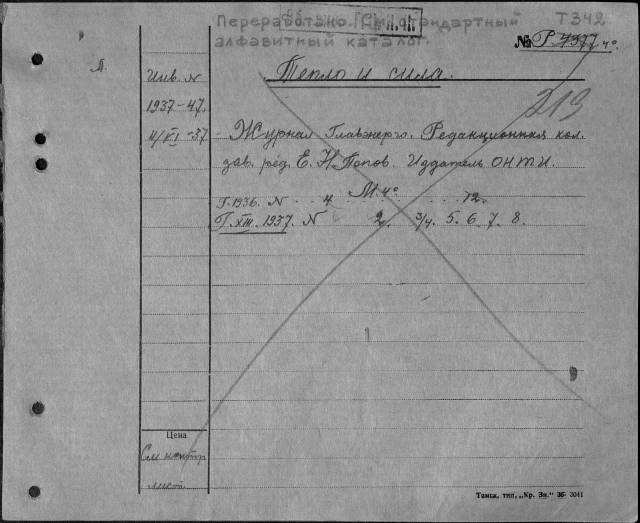 Переработано. См. стандартный
алфавитный каталог.
Т 342
№ Р-4377 4°
Инв. N
1937-47.
11/VI-37
Тепло и сила.
213
Журнал Главэнерго. Редакционная кол.
зав. ред. Е. Н. Попов. Издатель ОНТИ.
М. 4°
Г. 1936. N 4 12.
Г. XIII. 1937. N 2. 3/4. 5. 6. 7. 8.
Цена
См контр
лист
Томск, тип. „Кр. Зн." 36- 3041